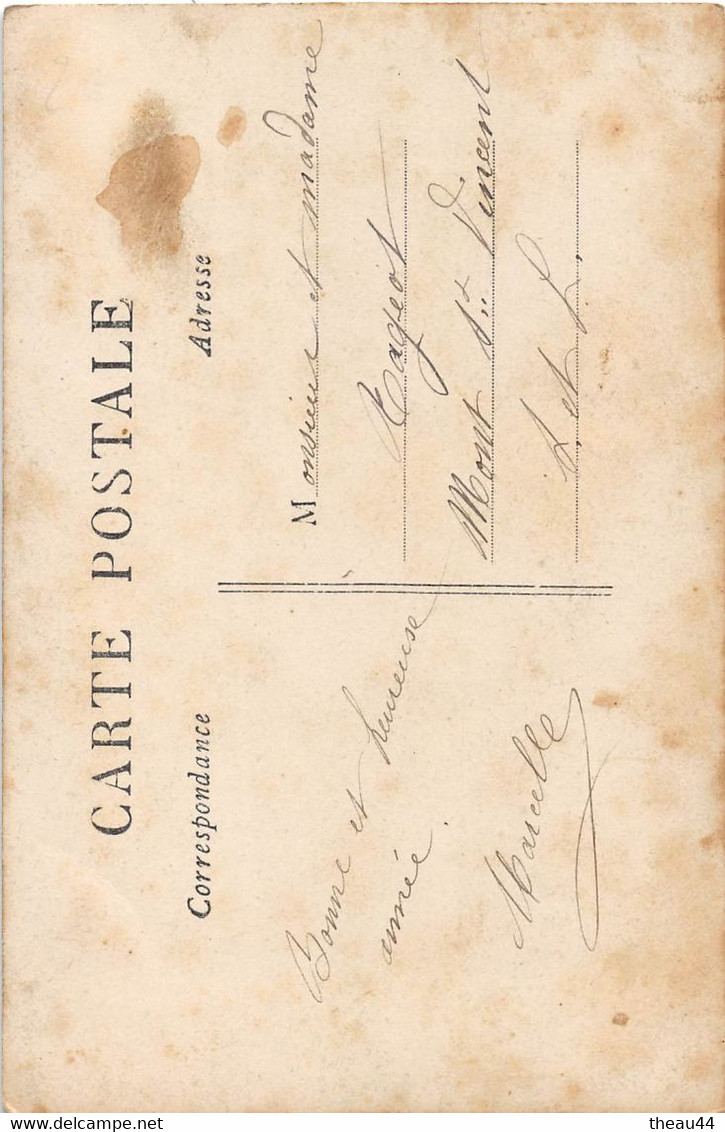 CARTE POSTALE
Correspondance
Adresse
Bonne et heureuse
année.
Marcelle
Monsieur et madame
Mont St Vincent
S. et L.
theau44